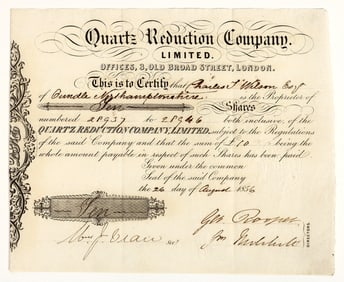 Quartz Reduction Company.
LIMITED.
OFFICES, 8, OLD BROAD STREET, LONDON.
This is to Certify that Charles T Wilson Esqr
of Oundle Northamptonshire is the Proprietor of
Ten Shares
numbered 28937 to 28946 both inclusive, of the
QUARTZ REDUCTION COMPANY, LIMITED, subject to the Regulations
of the said Company and that the sum of £10 being the
whole amount payable in respect of such Shares has been paid
Given under the common
Seal of the said Company
the 26 day of August 1856
Ten
Geo Cooper
Secy
DIRECTORS.